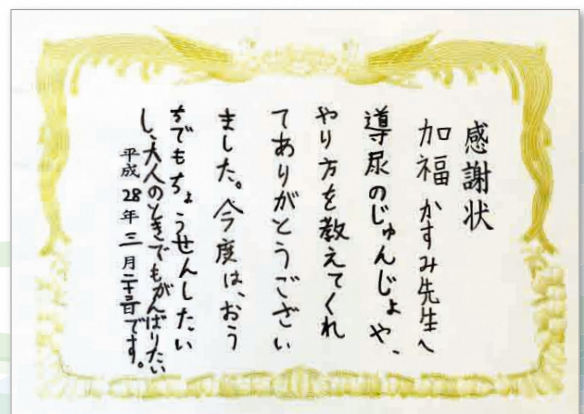 感謝状
加福 かすみ先生へ
導尿のじゅんじょや、
やり方を教えてくれ
てありがとうござい
ました。今度は、おう
ちでもちょうせんしたい
し、大人のときでもがんばりたい
です。
平成28年三月